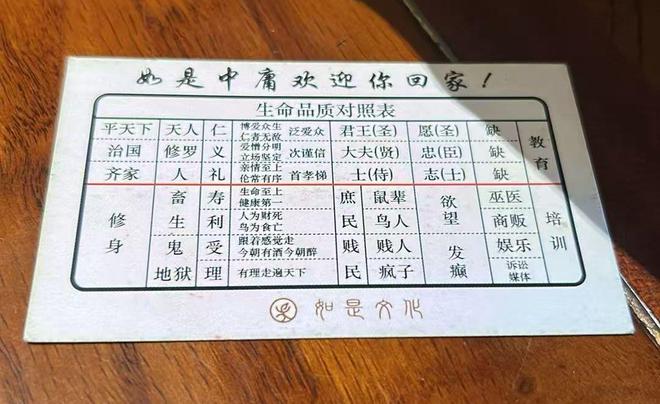 如是中庸欢迎你回家！
生命品质对照表
平天下 天人 仁 博爱众生 仁者无敌 泛爱众 君王(圣) 愿(圣) 缺 教育
治国 修罗 义 爱憎分明 立场坚定 次谨信 大夫(贤) 忠(臣) 缺
齐家 人 礼 亲情至上 伦常有序 首孝悌 士(侍) 志(士) 缺
修身 畜生 寿 生命至上 健康第一 庶民 鼠辈 欲望 巫医 培训
利 人为财死 鸟为食亡 鸟人 商贩
鬼 受 跟着感觉走 今朝有酒今朝醉 贱民 贱人 发癫 娱乐
地狱 理 有理走遍天下 疯子 诉讼 媒体
如是文化